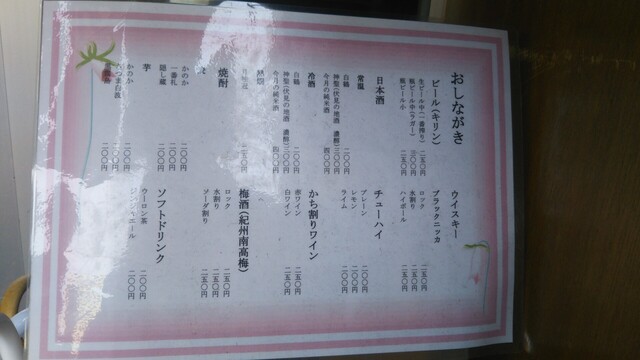 おしながき
ビール(キリン)
生ビール中(一番搾り) 二五〇円
瓶ビール中(ラガー) 三〇〇円
瓶ビール小 二五〇円
日本酒
常温
白鶴 二〇〇円
神聖(伏見の地酒 濃醇) 三〇〇円
今月の純米酒 四〇〇円
冷酒
白鶴 二〇〇円
神聖(伏見の地酒 濃醇) 三〇〇円
今月の純米酒 四〇〇円
熱燗
二五〇円
焼酎
麦
かのか 二〇〇円
一番札 二〇〇円
隠し蔵 二〇〇円
芋
かのか 二〇〇円
さつま白波 二〇〇円
二〇〇円
ウイスキー
ブラックニッカ
ロック 二五〇円
水割り 二五〇円
ハイボール 二五〇円
チューハイ
プレーン 二〇〇円
レモン 二〇〇円
ライム 二〇〇円
かち割りワイン
赤ワイン 二五〇円
白ワイン 二五〇円
梅酒(紀州南高梅)
ロック 二五〇円
水割り 二五〇円
ソーダ割り 二五〇円
ソフトドリンク
ウーロン茶 二〇〇円
ジンジャエール 二〇〇円